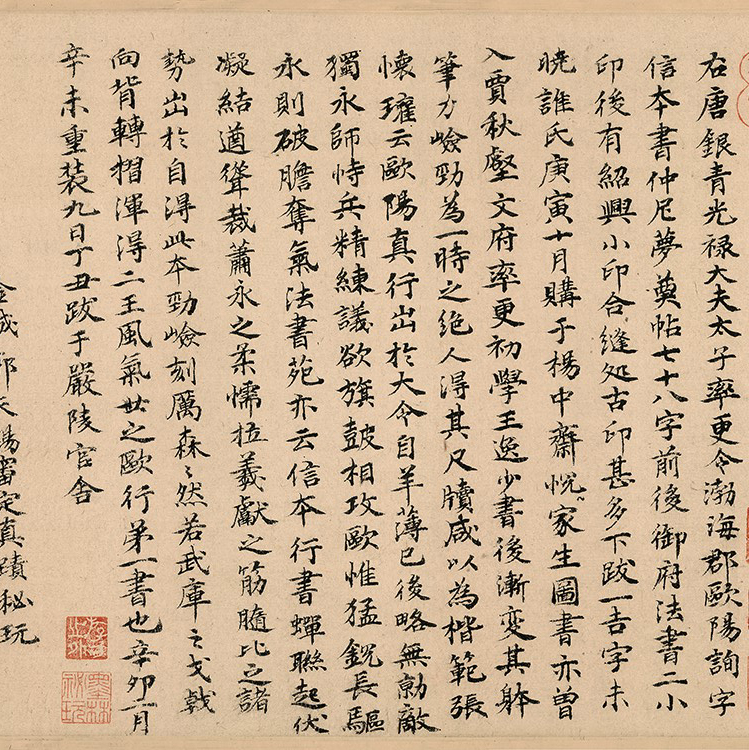 右唐銀青光禄大夫太子率更令渤海郡歐陽詢字
信本書仲尼夢奠帖七十八字前後御府法書二小
印後有紹興小印合縫処古印甚多下跋一吉字未
曉誰氏庚寅十月購于楊中齋悦家生圖書亦曽
入賈秋壑文府率更初學王逸少書後漸變其躰
筆力嶮勁為一時之絶人得其尺牘咸以為楷範張
懷瓘云歐陽真行出於大令自羊薄已後略無勍敵
獨永師恃兵精練議欲旗鼓相攻歐惟猛銳長驅
永則破膽奪氣法書苑亦云信本行書蟬聯起伏
凝結遒聳裁蕭永之柔懦拉羲獻之筋髓比之諸
勢出於自得此本勁嶮刻厲森々然若武庫之戈戟
向背轉摺渾得二王風氣世之歐行第一書也辛卯二月
辛未重裝九日丁丑跋于嚴陵官舎
金城郭天錫審定真蹟秘玩